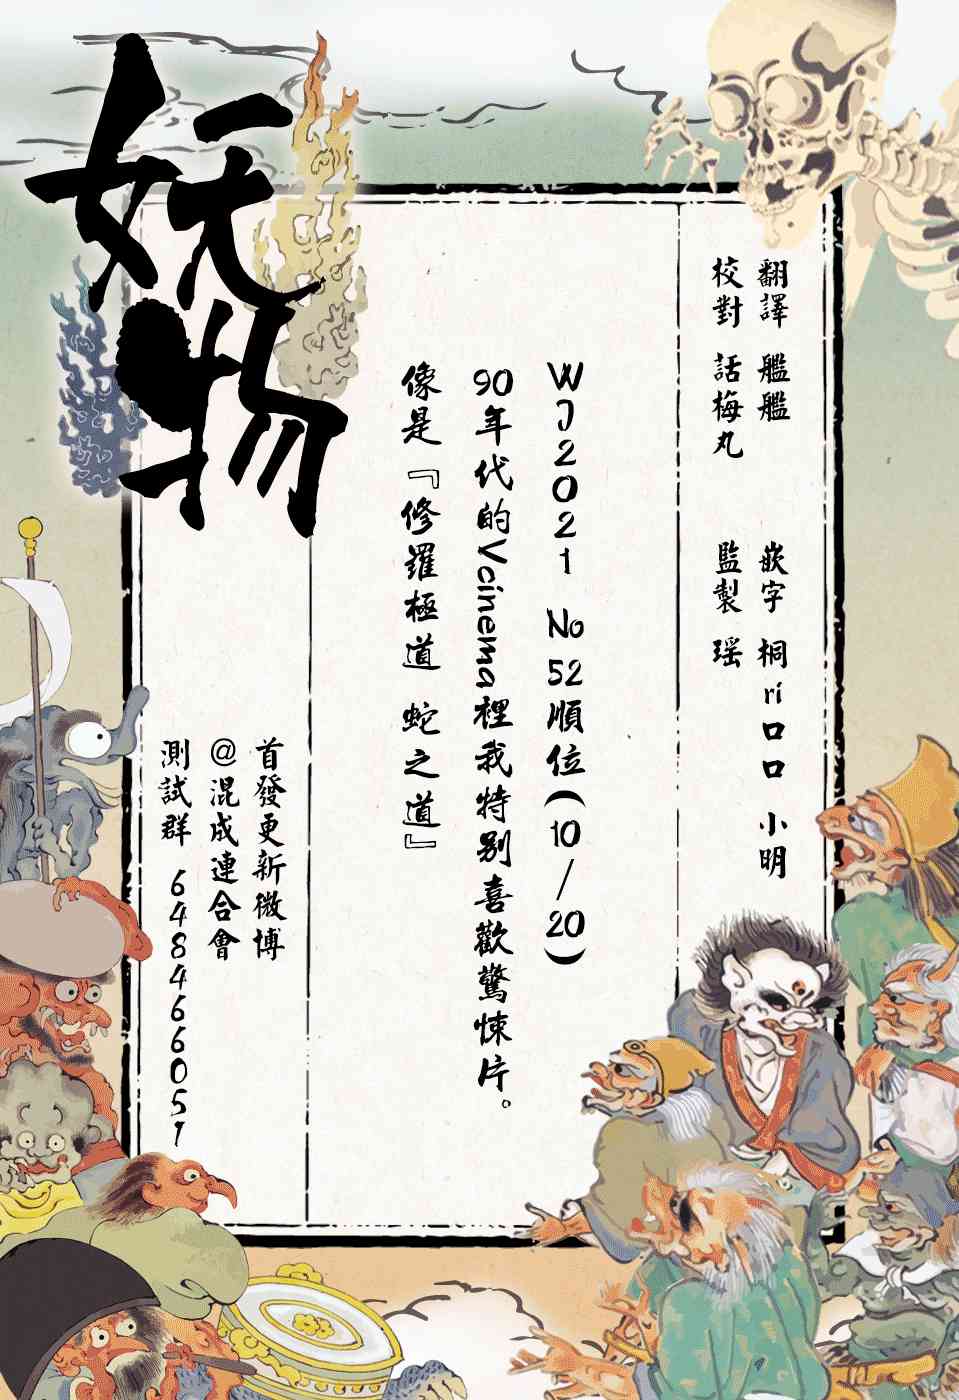 妖物
翻譯 艦艦 嵌字 桐ri口口 小明
校對 話梅丸 監製 瑶
WJ2021 No52順位(10/20)
90年代的Vcinema裡我特别喜歡驚悚片。
像是『修羅極道 蛇之道』
首發更新微博
@混成連合會
測試群 648466051